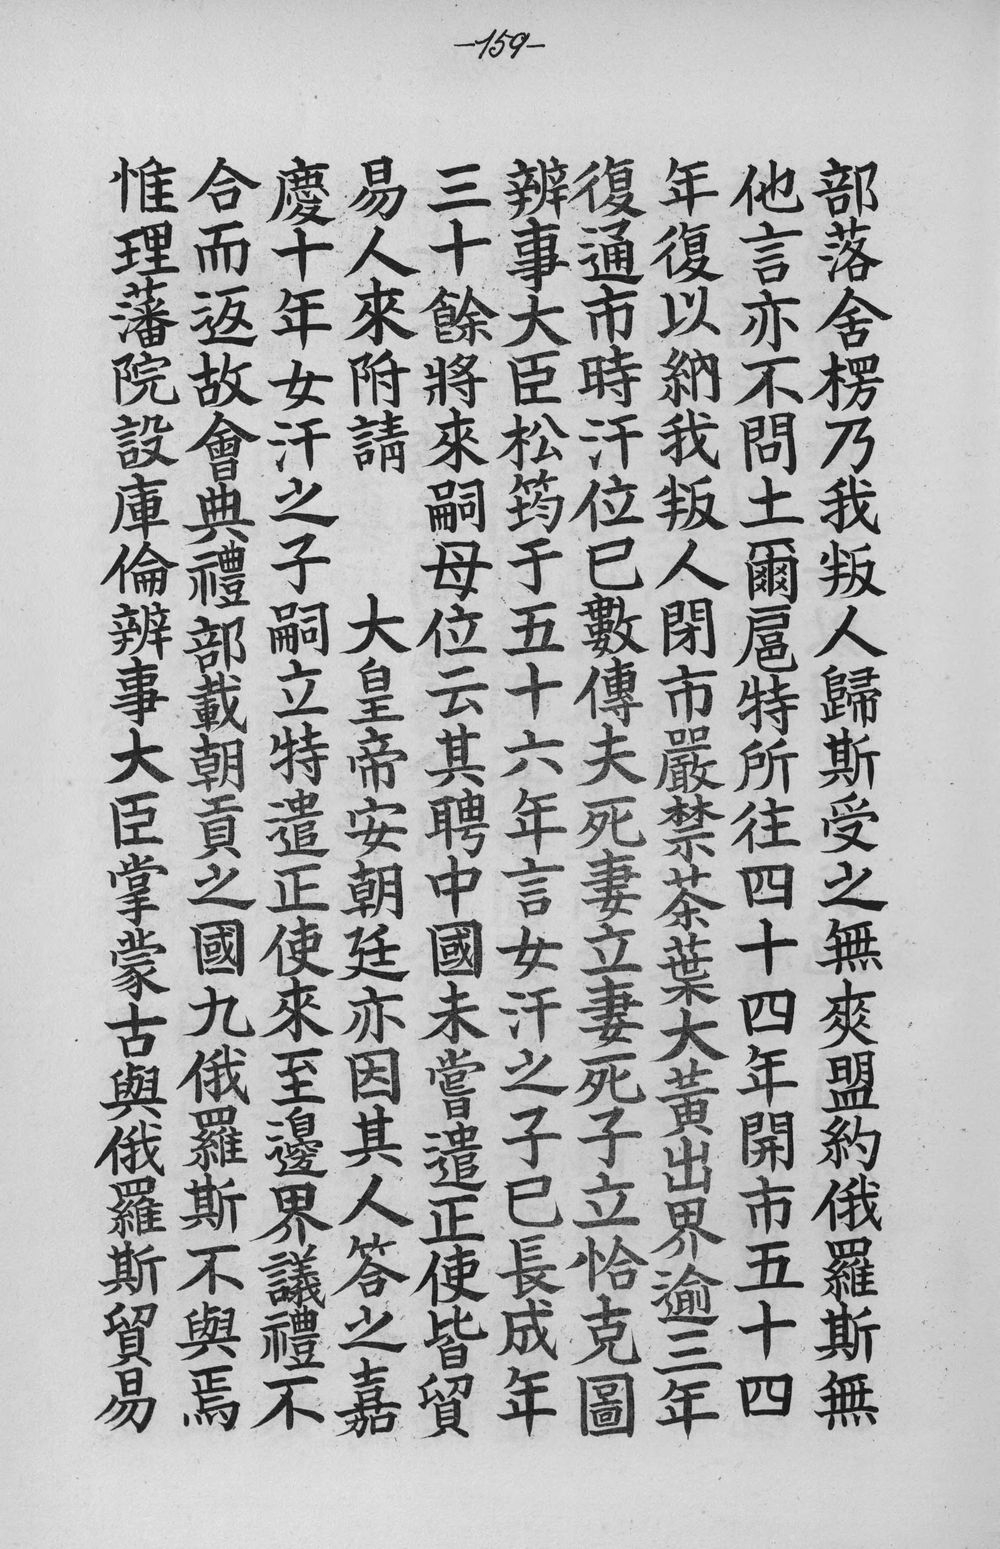 -159-
部落舍楞乃我叛人歸斯受之無爽盟約俄羅斯無
他言亦不問土爾扈特所往四十四年開市五十四
年復以納我叛人閉市嚴禁茶葉大黃出界逾三年
復通市時汗位已數傳夫死妻立妻死子立恰克圖
辦事大臣松筠于五十六年言女汗之子已長成年
三十餘將來嗣母位云其聘中國未嘗遣正使皆貿
易人來附請　大皇帝安朝廷亦因其人答之嘉
慶十年女汗之子嗣立特遣正使來至邊界議禮不
合而返故會典禮部載朝貢之國九俄羅斯不與焉
惟理藩院設庫倫辦事大臣掌蒙古與俄羅斯貿易